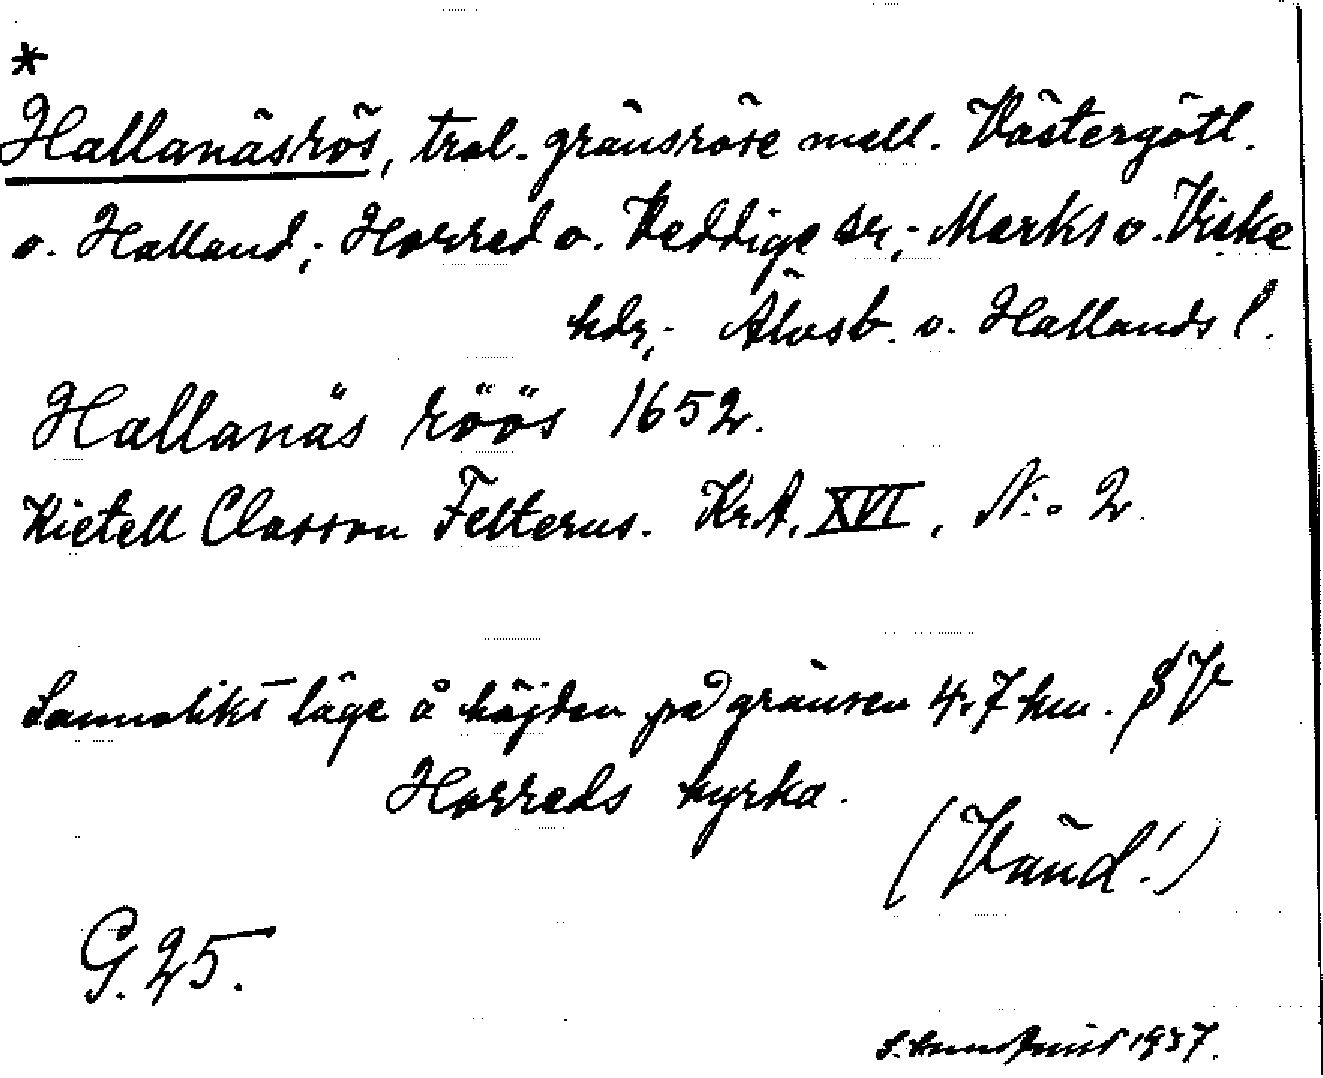 *
Hallanäsrös, trol. gränsröse mell. Västergötl.
o. Halland; Horred o. Veddige sr; Marks o. Viske
hdr; Älvsb. o. Hallands l.
Hallanäs röös 1652.
Kietell Classon Felterus. Kr.A. XVI, N:o 2.
Sannolikt läge å höjden på gränsen 4.7 km.
Horreds kyrka.
(Vänd!)
G. 25.
1937.